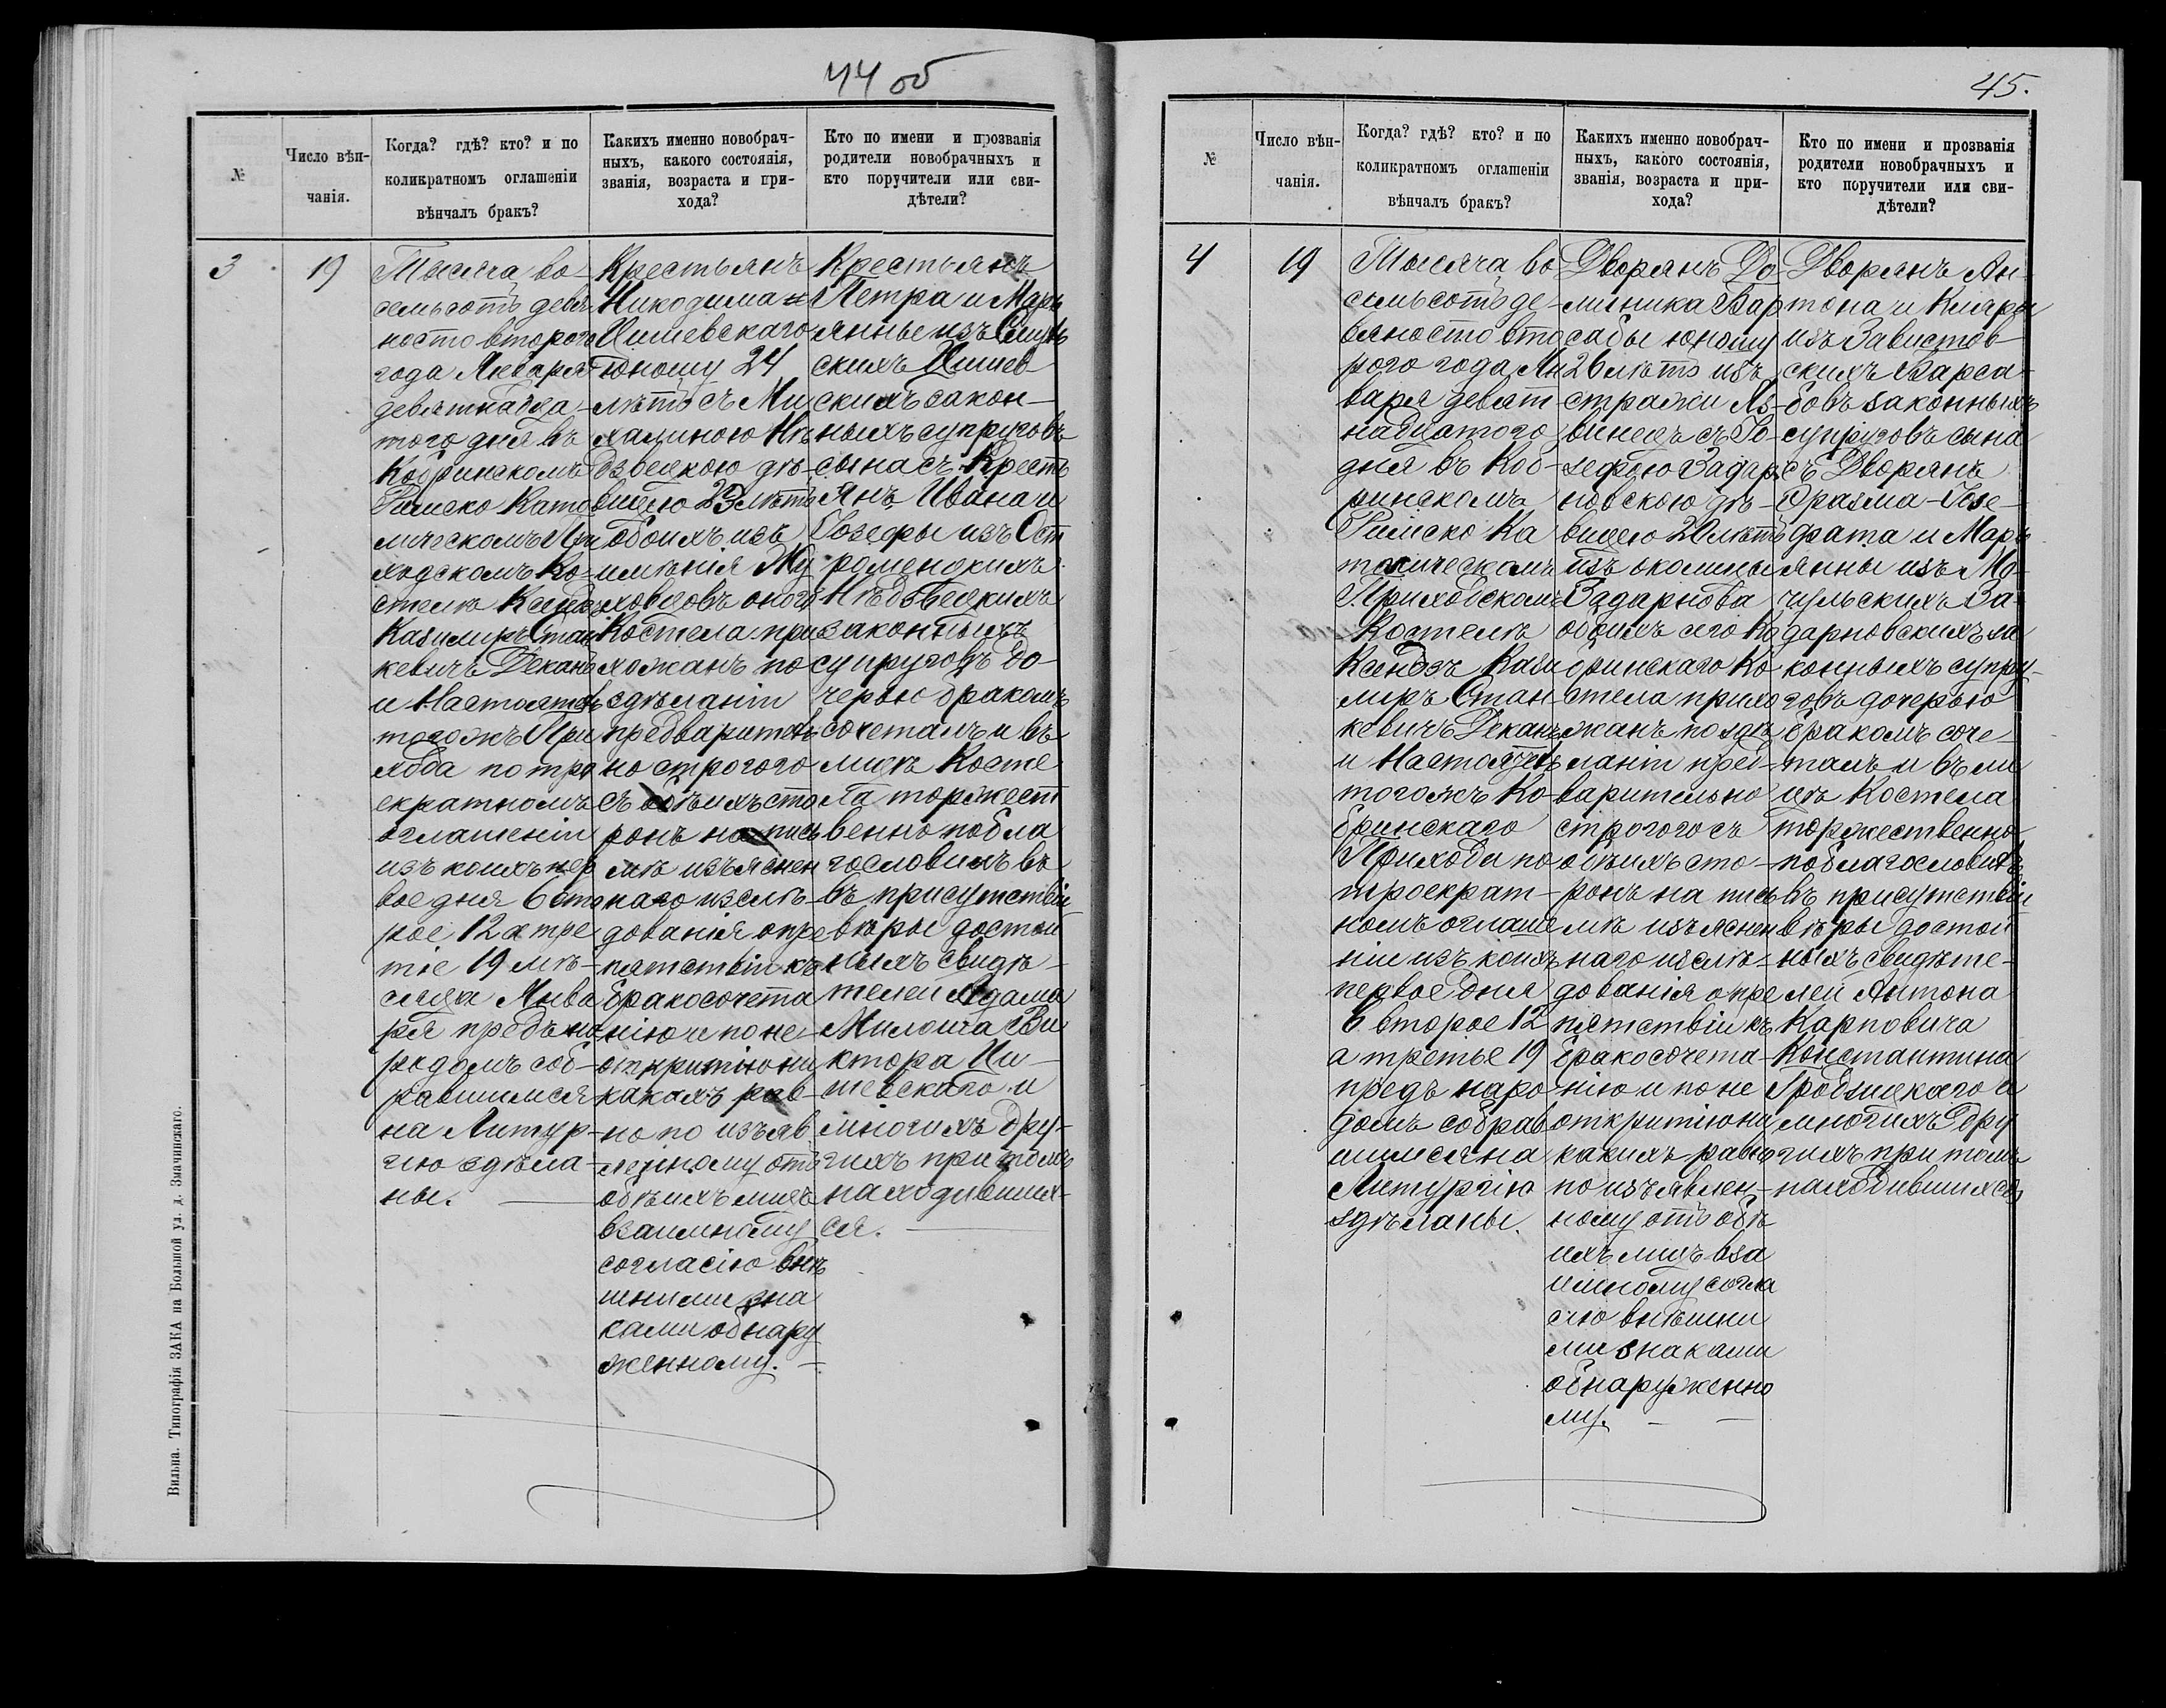 44 об
№
Число вѣн-
чанія.
Когда? гдѣ? кто? и по
коликратномъ оглашеніи
вѣнчалъ бракъ?
Какихъ именно новобрач-
ныхъ, какого состоянія,
званія, возраста и при-
хода?
Кто по имени и прозванія
родители новобрачныхъ и
кто поручители или сви-
дѣтели?
3
19
Тысяча во-
семьсотъ девя
носто второго
года Января
девятнадца-
того дня въ
Кобринскомъ
Римско Като
лическомъ При
ходскомъ Ко-
стелѣ Ксендзъ
Казимиръ Стан
кевичъ Деканъ
и Настоятель
тогожъ При
хода по тро
екратномъ
оглашеніи
изъ коихъ пер
вое дня 6 вто
рое 12 а тре
тіе 19 мѣ-
сяца Янва
ря предъ на
родомъ соб-
равшимся
на Литур-
гію здѣла-
ны.
Крестьянъ
Никодима
Цишевскаго
юношу 24
лѣтъ съ Ми
халиною Нѣ
дзвецкою дѣ-
вицею 23 лѣтъ
обоихъ изъ
имѣнія Жу
ховцовъ оного
Костела при
хожанъ по
сдѣланіи
предварител
но строгого
съ обѣихъ сто
ронъ на пись
мѣ изъяснен
наго изслѣ-
дованія опре
пятствіи къ
бракосочета
нію и по не
открытію ни
какихъ рав-
но по изъяв
ленному отъ
обѣихъ лицъ
взаимному
согласію внѣ
шними зна
ками обнару
женному.
Крестьянъ
Петра и Марь
янны изъ
скихъ Цишев
скихъ закон-
ныхъ супруговъ
сына съ Кресть
янъ Ивана и
Іозефы изъ Ост
роменскихъ
Нѣдзвецкихъ
законныхъ
супруговъ до-
черью бракомъ
сочеталъ и въ
лицѣ Косте
ла торжест
венно побла
гословилъ въ
въ присутствіи
вѣры достой
ныхъ свидѣ-
телей Адама
Милоша Ви
ктора Ци-
шевскаго и
многихъ дру-
гихъ при томъ
находивших-
ся.
Вильна. Типографія ЗАКА на Большой ул. д. Значинскаго.
45.
№
Число вѣн-
чанія.
Когда? гдѣ? кто? и по
коликратномъ оглашеніи
вѣнчалъ бракъ?
Какихъ именно новобрач-
ныхъ, какого состоянія,
званія, возраста и при-
хода?
Кто по имени и прозванія
родители новобрачныхъ и
кто поручители или сви-
дѣтели?
4
19
Тысяча во
семьсотъ де-
вяносто вто
рого года Ян
варя девят-
надцатого
дня въ Коб-
ринскомъ
Римско Ка
толическомъ
Приходскомъ
Костелѣ
Ксендзъ Кази
миръ Стан
кевичъ Деканъ
и Настоятель
тогожъ Ко-
бринскаго
Прихода по
троекрат-
номъ оглаше
ніи изъ коихъ
первое дня
6 второе 12
а третье 19
предъ наро
домъ собрав
шимся на
Литургію
здѣланы.
Дворянъ До-
миника Вар
сабы юношу
26 лѣтъ изъ
стражи Яз-
винецъ съ Іо-
зефою Задар
новскою дѣ-
вицею 20 лѣтъ
изъ околицы
Задарнова
обоихъ сего Ко
бринскаго Ко
стела прихо
жанъ по здѣ
ланіи пред-
варительно
строгого съ
обѣихъ сто-
ронъ на пись
мѣ изъяснен
наго изслѣ-
дованія опре
пятствіи къ
бракосочета-
нію и по не
открытію ни
какихъ равно
по изъявлен-
ному отъ обѣ
ихъ лицъ вза
имному согла
сію внѣшни
ми знаками
обнаруженно
му.
Дворянъ Ан-
тона и Кляры
изъ Завистов
скихъ Варса-
бовъ законныхъ
супруговъ сына
съ Дворянъ
Эразма-Іозе-
фата и Марь
янны изъ Мо-
чульскихъ За-
дарновскихъ за
конныхъ супру-
говъ дочерью
бракомъ соче-
талъ и въ ли
цѣ Костела
торжественно
поблагословилъ
въ присутствіи
вѣры достой
ныхъ свидѣте-
лей Антона
Карповича
Константина
Гродзицкаго и
многихъ дру
гихъ при томъ
находившихся